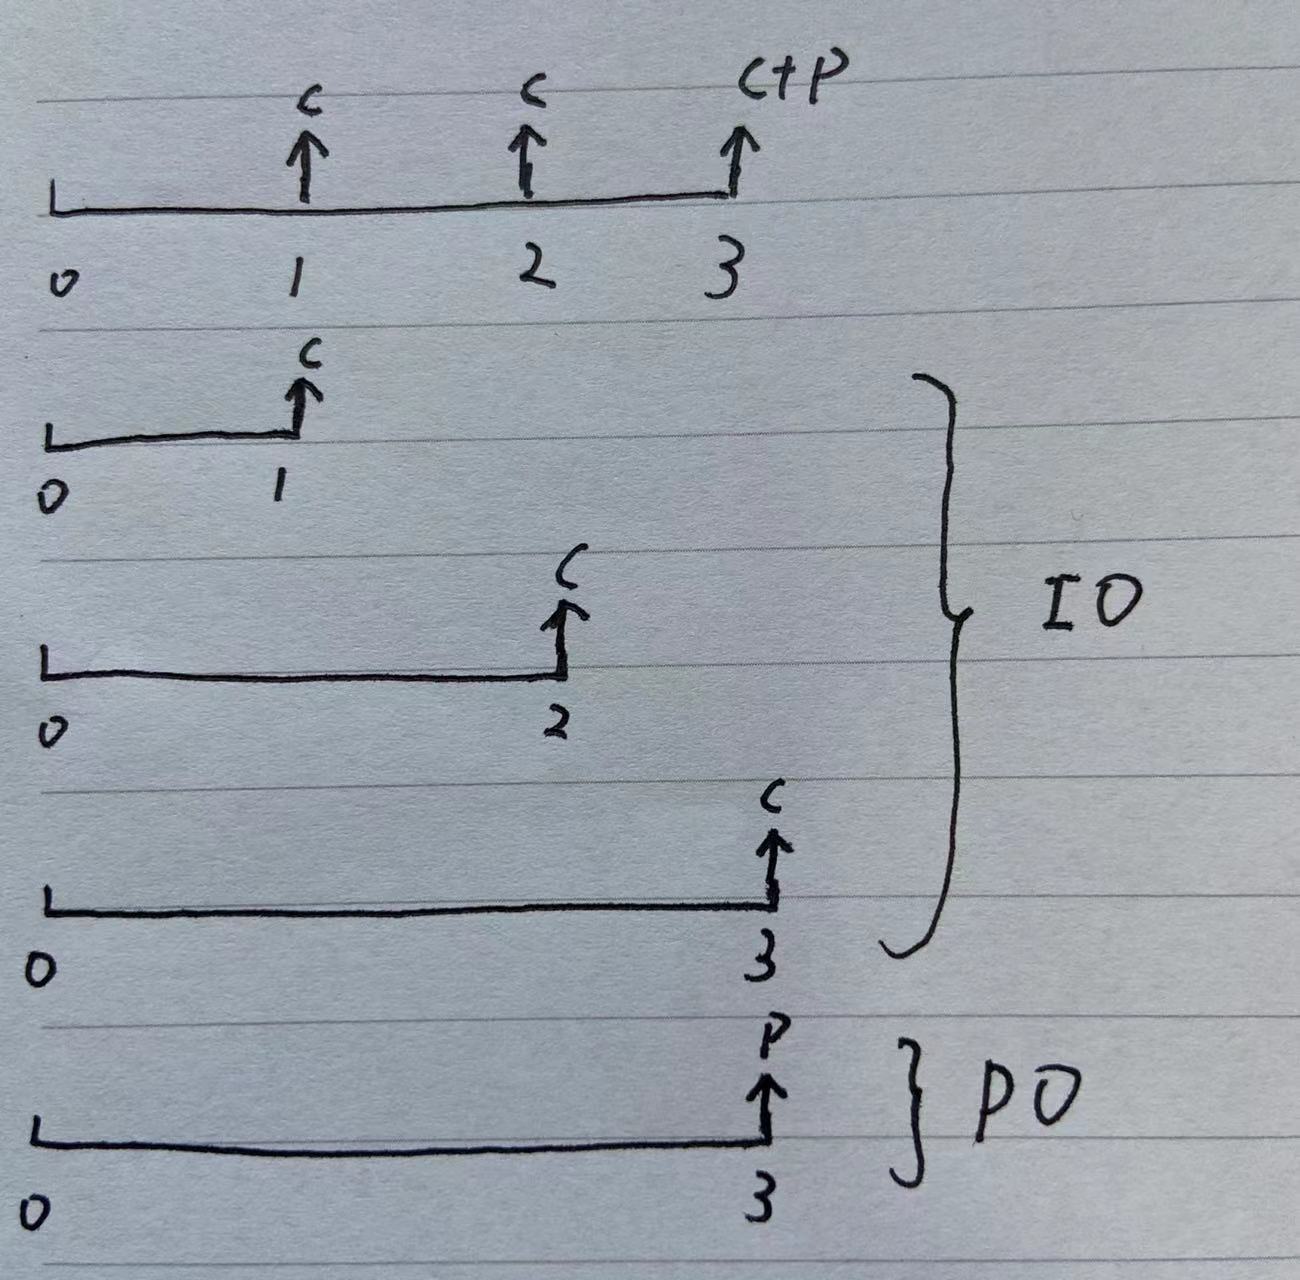 C C C+P
0 1 2 3
C
0 1
C
IO
0 2
C
0 3
P
PO
0 3